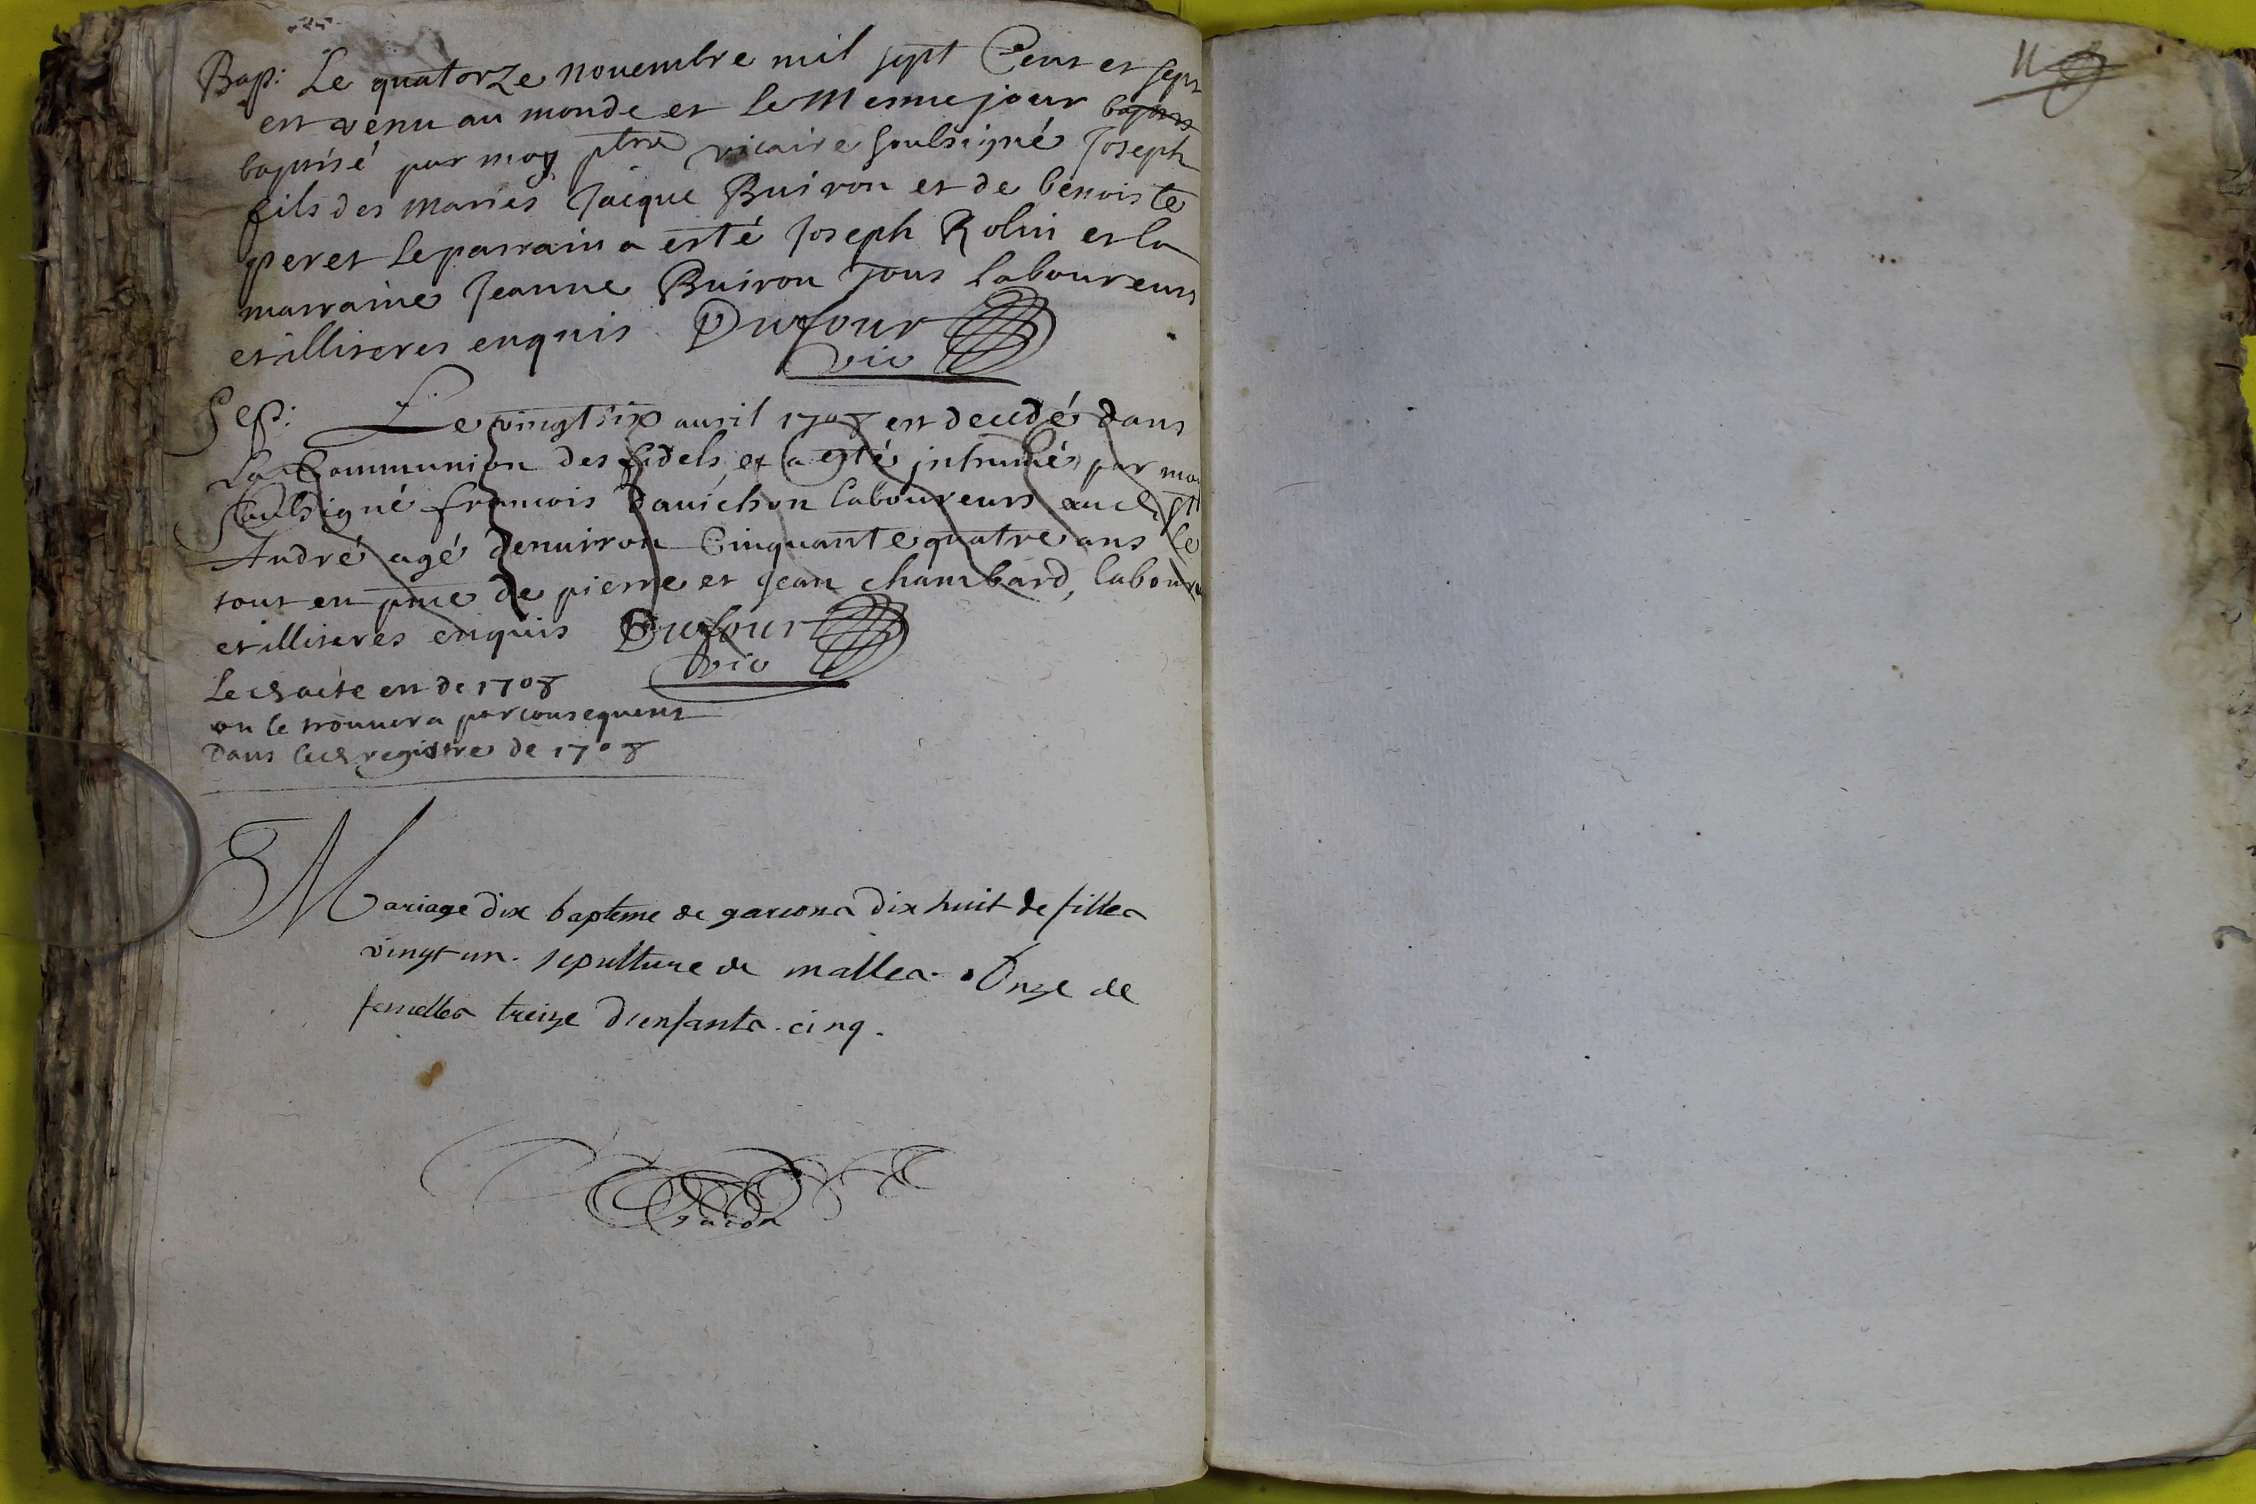 Bap: Le quatorze novembre mil sept Cent et sept
est venu au monde et le mesme jour bapt
baptisé par moy ptre vicaire soubsigné Joseph
fils des mariés Jacque Buiron et de benoiste
peret le parrain a esté Joseph Rolin et la
marraine Jeanne Buiron Tous laboureurs
et illiteres enquis Dufour
vic
Sep: Le vingt six auril 1708 est decedé dans
La Communion des fidels et a esté inhumé par moy
soubsigné francois Dauichon laboureurs au st
André agé denuiron Cinquante quatre ans le
tout en pnce de pierre et Jean chambard, labour
et illiteres enquis Dufour
vic
Led acte est de 1708
on le trouuera par consequent
Dans led registre de 1708
Mariage dix bapteme de garcons dix huit de filles
vingt un. sepulture de malles. Onze de
femelles treize d'enfants. cinq.
gacon
11